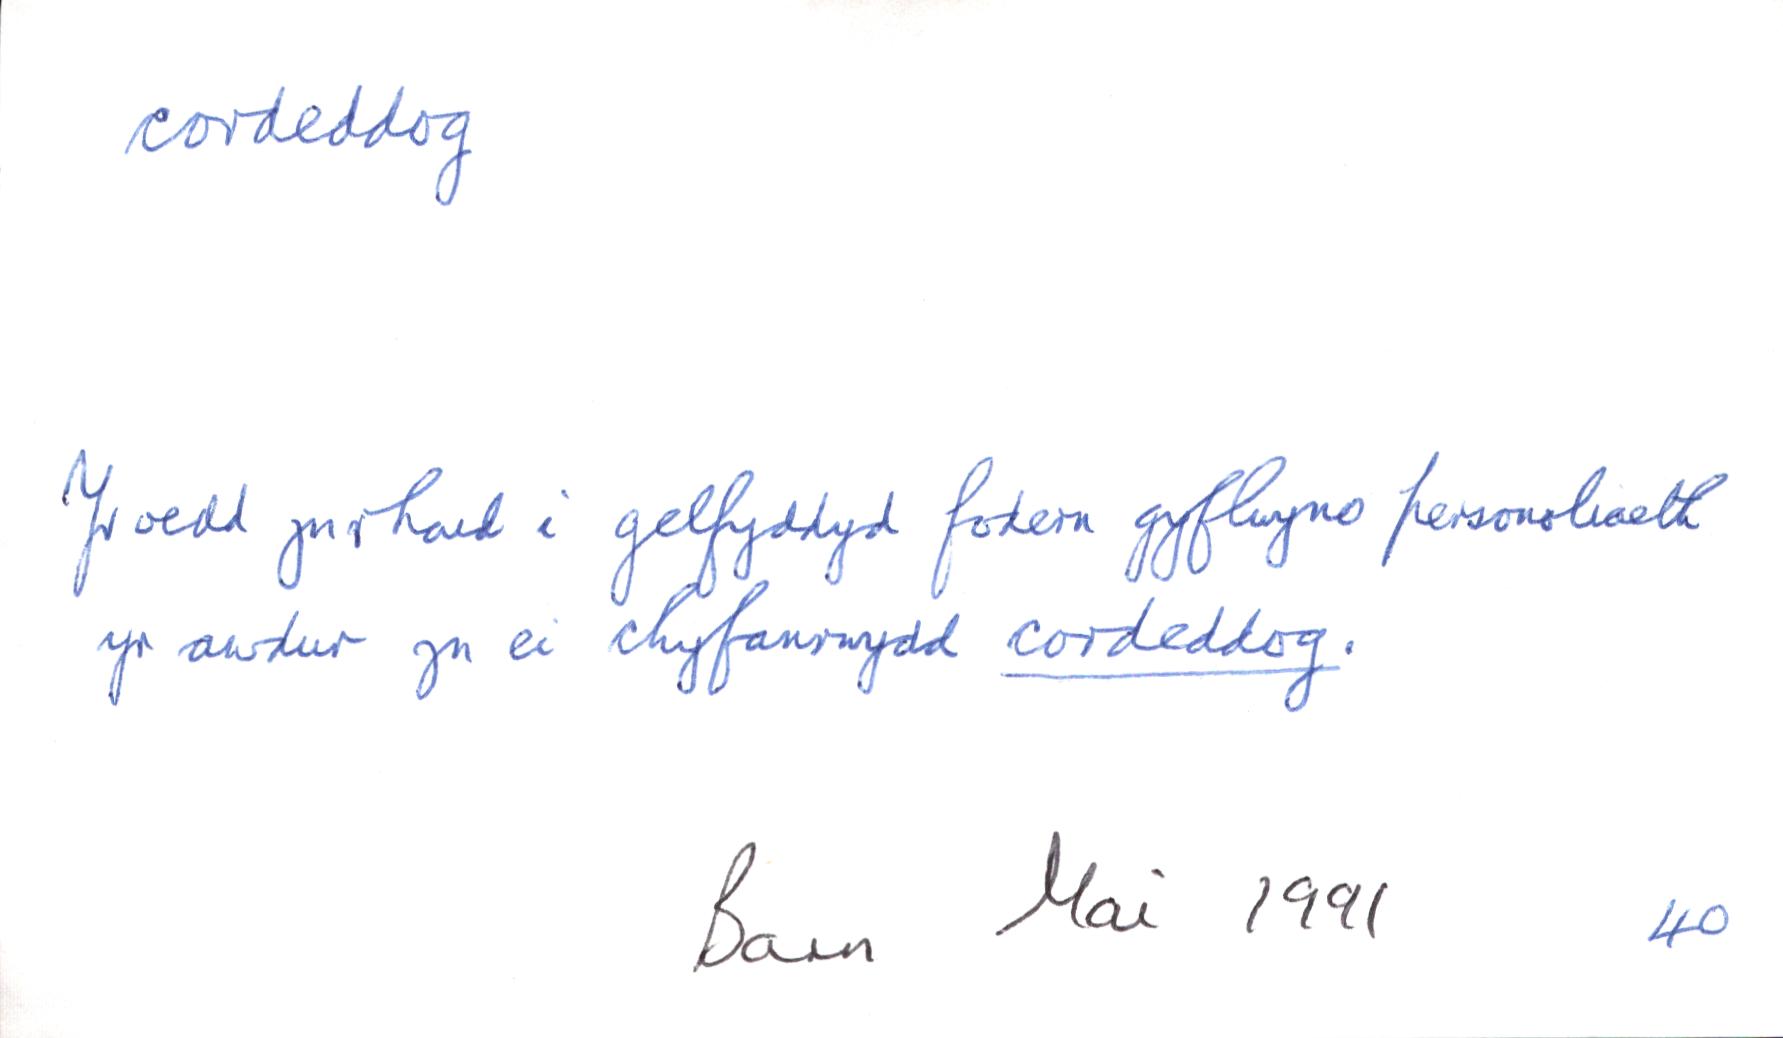 cordeddog
Yr oedd yn rhaid i gelfyddyd fodern gyflwyno personoliaeth
yr awdur yn ei chyfanrwydd cordeddog.
Barn Mai 1991 40